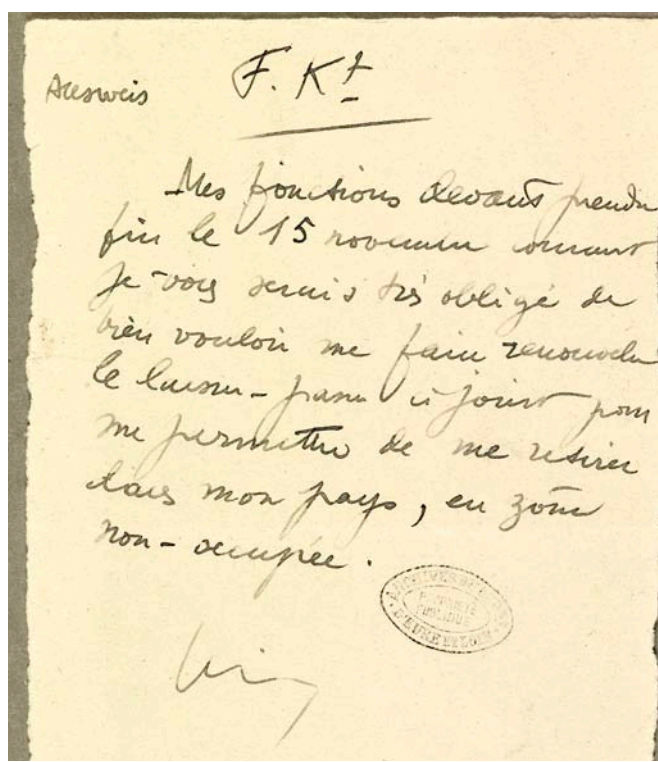 Ausweis
F. Kt
Mes fonctions devant prendre
fin le 15 novembre courant
je vous serais très obligé de
bien vouloir me faire renouveler
le laisser-passer ci joint pour
me permettre de me retirer
dans mon pays, en zône
non-occupée.
ARCHIVES
PROPRIÉTÉ
PUBLIQUE
D'EURE ET LOIR